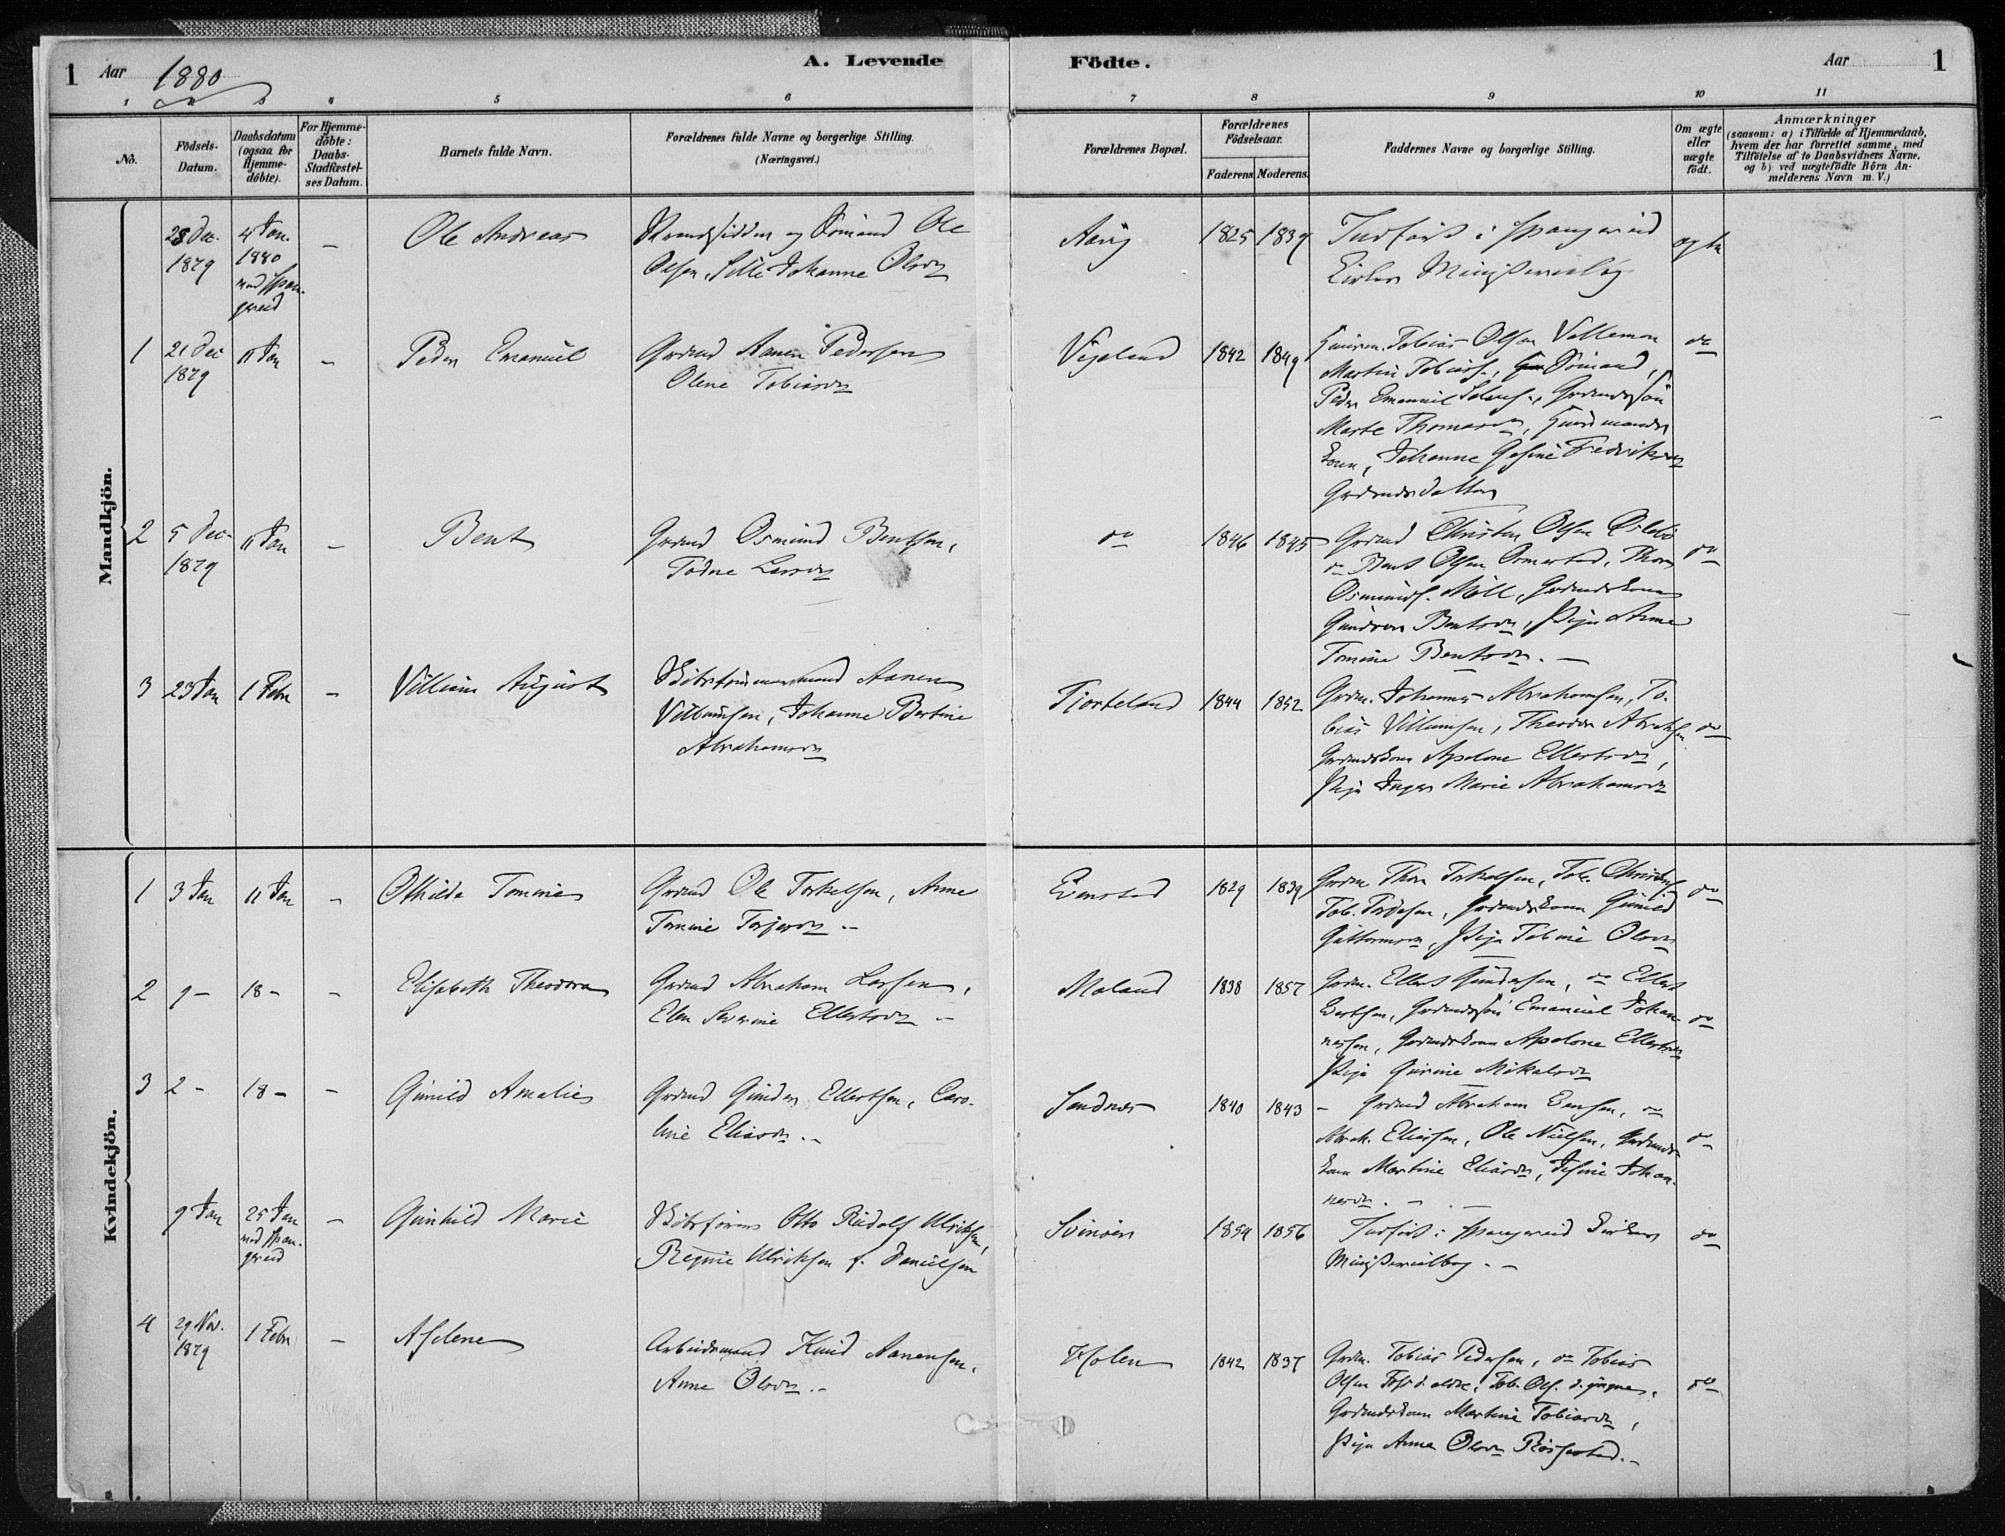 1 Aar 1880 A. Levende Födte. Aar 1
1 2 3 4 5 6 7 8 9 10 11
No.
Födsels-Datum.
Daabsdatum (ogsaa for Hjemme-döbte).
For Hjemme-döbte: Daabs-Stadfæstel-ses Datum.
Barnets fulde Navn.
Forældrenes fulde Navne og borgerlige Stilling.
(Næringsvei.)
Forældrenes Bopæl.
Forældrenes Födselsaar.
Faderens Moderens
Faddernes Navne og borgerlige Stilling.
Om ægte eller uægte födt.
Anmærkninger
(saasom: a) i Tilfælde af Hjemmedaab,
hvem der har forrettet samme, med
Tilföielse af to Daabsvidners Navne,
og b) ved uægtefödte Börn An-
melderens Navn m. V.)
Mandkjön.
28 Dec. 1879
4 Jan. 1880 ved Span-gereid
–
Ole Andreas
Strandsidder og Sömand Ole
Olsen, Sille Johanne Olsdr
Aavig
1825 1839
Indfört i Spangereid
Kirkes Ministerialbog
ægte
1
21 Dec 1879
11 Jan
–
Peder Emanuel
Grdmd Aanen Pedersen
Olene Tobiasdr
Vigeland
1842 1849
Huusm. Tobias Olsen
Martin Tobias., Sömand,
Peder Emanuel, Grdmdssön
Marte Thomasdr, Huusmands
kone, Johanne Gesine Fredriksdr
Grdmdsdatter
do
2
5 Dec. 1879
11 Jan
–
Bent
Grdmd Osmund Bentsen,
Todne Larsdr
do
1846 1845
Grdmd Christen Olsen
do Bent Olsen, Thore
Osmunds. Möll, Grdmdskone
Bentsdr, Pige Anne
Tomine Bentsdr. –
do
3
23 Jan
1 Febr
–
Villum August
Aanen
Villumsen, Johanne Bertine
Abrahamsdr
Fjorteland
1844 1852
Grdm. Johannes Abrahamsen, To-
bias Villumsen, Theodor Abrahs.
Grdmdskone Apolone Ellertsdr,
Pige Inger Marie Abrahamsdr
do
Kvindekjön.
1
3 Jan
11 Jan
–
Othilde Tomine
Grdmd Ole Torkelsen, Anne
Tomine Torjersdr –
1829 1839
Grdm Thore Torkelsen, Tob.
Tob., Grdmdskone Gunild
Guttormsdr, Pige Tobine Olsdr
do
2
9 –
18 –
–
Elisabeth Theodora
Grdmd Abraham Larsen,
Elen Severine Ellertsdr –
Moland
1838 1857
Grdm. Ellert Gundersen, do Ellert
Grdmdssön Emanuel Johan-
nessen, Grdmdskone Apolone Ellertsdr
Pige Gurine Mikalsdr
do
3
2 –
18 –
–
Gunild Amalie
Grdmd Gunder Ellertsen, Caro-
line Eliasdr. –
Sandnes
1840 1843
– Grdmd Abraham, do
Abrah. Eliassen, Ole Nielsen, Grdmds-
kone Martine Eliasdr, Johan-
nesdr. –
do
9 Jan
25 Jan ved Span-gereid
–
Gunhild Marie
Otto Rudolf Ulriksen,
Regine Ulriksen f. Danielsen
Svinöer
1854 1856
Indfört i Spangereid Kirkes
Ministerialbog. –
do
4
29 Nov. 1879
1 Febr
–
Aslene
Arbeidsmand Knud Aanensen,
Anne Olsdr. –
Holen
1842 1837
Grdm. Tobias Pedersen, do Tobias
Olsen d. ældre, Tob. Ols. d. yngre,
Grdmdskone Martine Tobiasdr,
Pige Anne Olsdr –
do